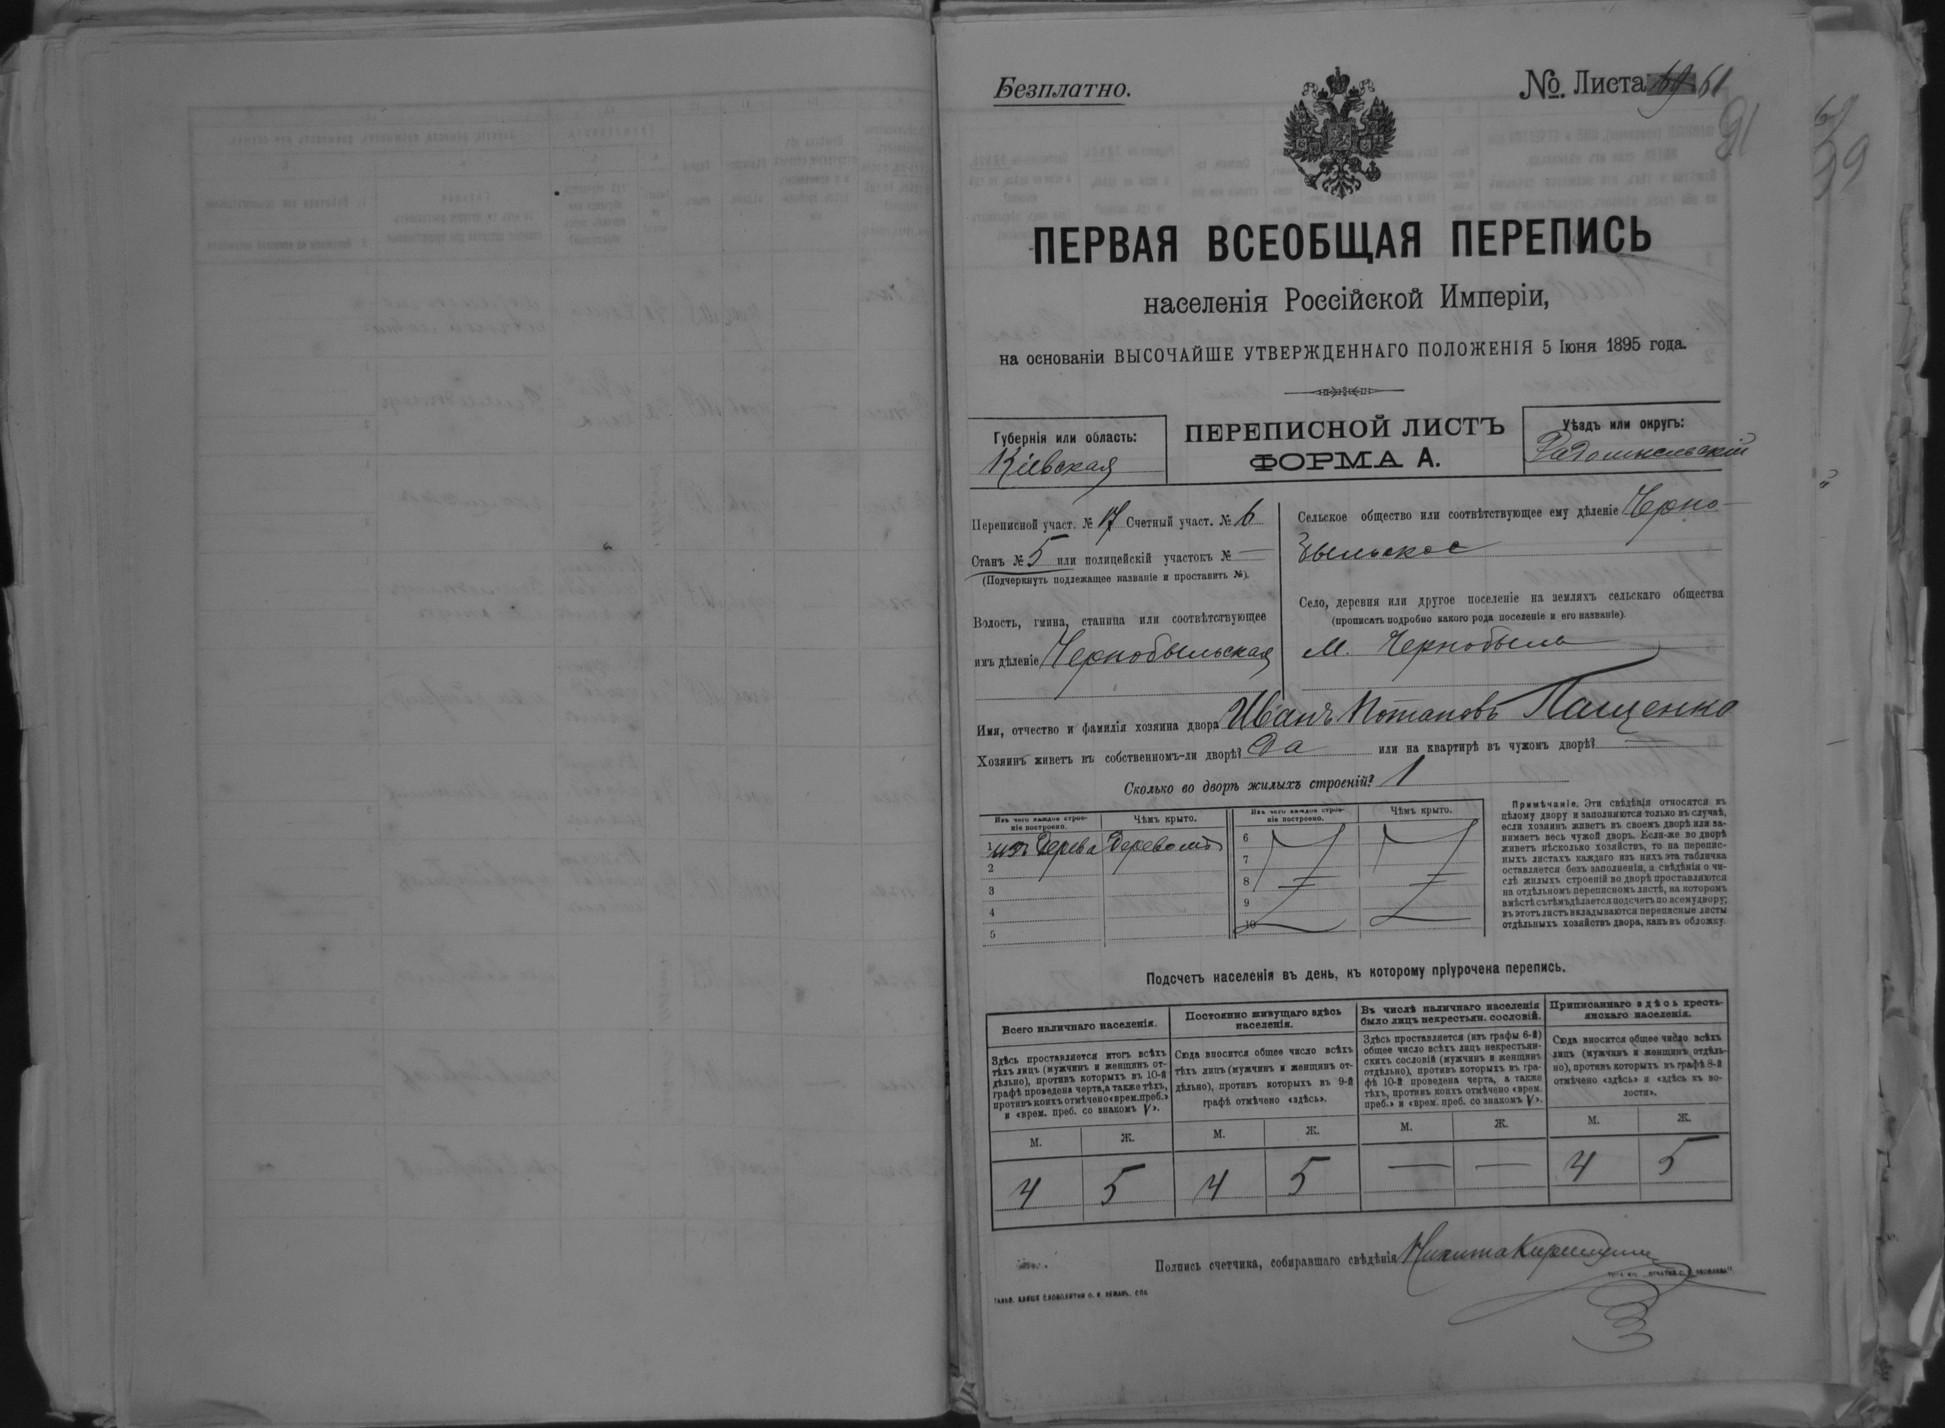 Безплатно.
№ Листа 61
91
ПЕРВАЯ ВСЕОБЩАЯ ПЕРЕПИСЬ
населенія Россійской Имперіи,
на основаніи ВЫСОЧАЙШЕ УТВЕРЖДЕННАГО ПОЛОЖЕНІЯ 5 Іюня 1895 года.
Губернія или область:
Кіевская
ПЕРЕПИСНОЙ ЛИСТЪ
ФОРМА А.
Уѣздъ или округъ:
Радомысльскій
Переписной участ. № 17 Счетный участ. № 6
Станъ № 5 или полицейскій участокъ № —
(Подчеркнуть подлежащее названіе и проставить №).
Волость, гмина, станица или соотвѣтствующее
имъ дѣленіе Чернобыльская
Сельское общество или соотвѣтствующее ему дѣленіе Черно-
быльское
Село, деревня или другое поселеніе на земляхъ сельскаго общества
(прописать подробно какого рода поселеніе и его названіе).
м. Чернобыль
Имя, отчество и фамилія хозяина двора Иванъ Потаповъ Пащенко
Хозяинъ живетъ въ собственномъ-ли дворѣ? Да или на квартирѣ въ чужомъ дворѣ? —
Сколько во дворѣ жилыхъ строеній? 1
Изъ чего каждое строе-
ніе построено.
Чѣмъ крыто.
Изъ чего каждое строе-
ніе построено.
Чѣмъ крыто.
1 изъ дерева деревомъ
2
3
4
5
6
7
8
9
10
Примѣчаніе. Эти свѣдѣнія относятся къ
цѣлому двору и заполняются только въ случаѣ,
если хозяинъ живетъ въ своемъ дворѣ или за-
нимаетъ весь чужой дворъ. Если-же во дворѣ
живетъ нѣсколько хозяйствъ, то на перепис-
ныхъ листахъ каждаго изъ нихъ эта табличка
оставляется безъ заполненія, а свѣдѣнія о чи-
слѣ жилыхъ строеній во дворѣ проставляются
на отдѣльномъ переписномъ листѣ, на которомъ
вмѣстѣ съ тѣмъ дѣлается подсчетъ по всему двору;
въ этотъ листъ вкладываются переписные листы
отдѣльныхъ хозяйствъ двора, какъ въ обложку.
Подсчетъ населенія въ день, къ которому пріурочена перепись.
Всего наличнаго населенія.
Здѣсь проставляется итогъ всѣхъ
тѣхъ лицъ (мужчинъ и женщинъ от-
дѣльно), противъ которыхъ въ 10-й
графѣ проведена черта, а также тѣхъ,
противъ коихъ отмѣчено «врем. преб.»
и «врем. преб. со знакомъ V».
Постоянно живущаго здѣсь
населенія.
Сюда вносится общее число всѣхъ
тѣхъ лицъ (мужчинъ и женщинъ от-
дѣльно), противъ которыхъ въ 9-й
графѣ отмѣчено «здѣсь».
Въ числѣ наличнаго населенія
было лицъ некрестьян. сословій.
Здѣсь проставляется (изъ графы 6-й)
общее число всѣхъ лицъ некрестьян-
скихъ сословій (мужчинъ и женщинъ
отдѣльно), противъ которыхъ въ гра-
фѣ 10-й проведена черта, а также
тѣхъ, противъ коихъ отмѣчено «врем.
преб.» и «врем. преб. со знакомъ V».
Приписаннаго здѣсь кресть-
янскаго населенія.
Сюда вносится общее число всѣхъ
лицъ (мужчинъ и женщинъ отдѣль-
но), противъ которыхъ въ графѣ 8-й
отмѣчено «здѣсь» и «здѣсь въ во-
лости».
М. Ж. М. Ж. М. Ж. М. Ж.
4 5 4 5 — — 4 5
Подпись счетчика, собиравшаго свѣдѣнія Никита